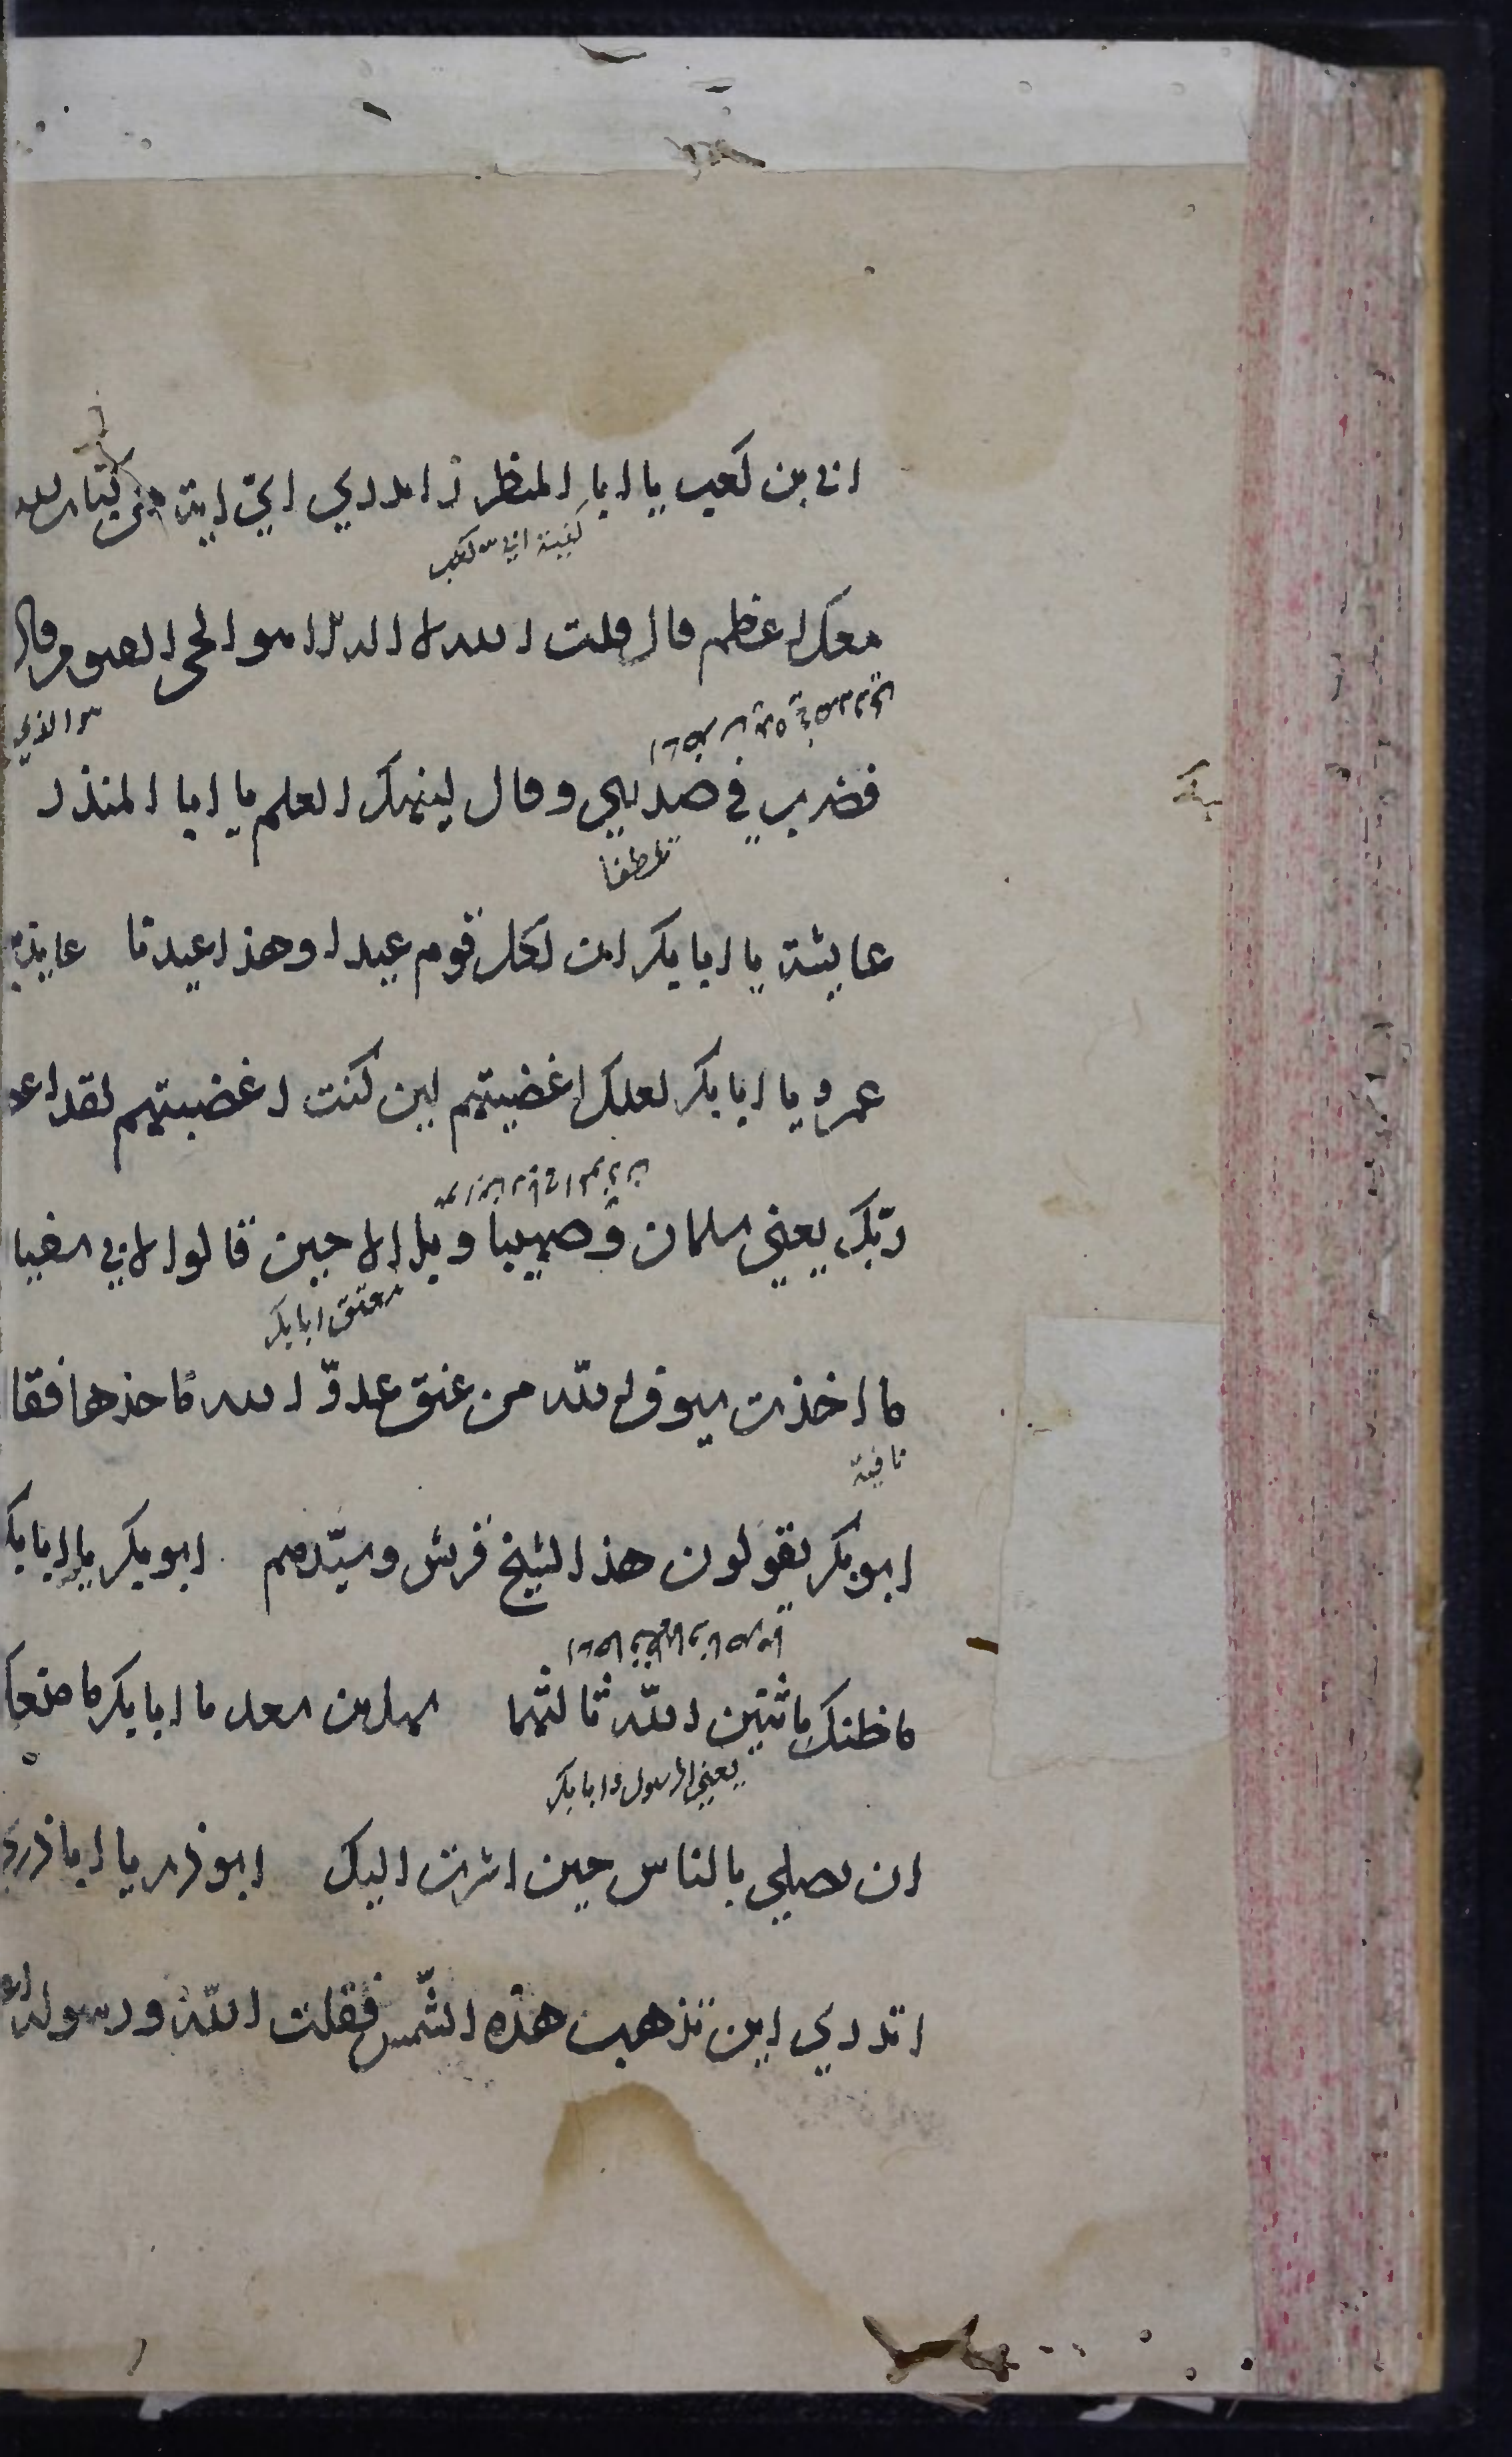 ابي بن كعب يا ابا المنظر اتدري اي اية من كتاب الله
كنية ابي بن كعب
معك اعظم قال قلت الله لا اله الا هو الحي القيوم قال
فضرب في صدري وقال ليهنك العلم يا ابا المنذر
تلطفا
عايشة يا ابا بكر ان لكل قوم عيدا وهذا عيدنا
عمرو يا ابا بكر لعلك اغضبتهم لين كنت اغضبتهم لقد
ربّك يعني سلمان وصهيبا وبلالا حين قالوا لابي سفيا
معتق ابا بكر
ما اخذت سيوف الله من عنق عدوّ الله ماخذها فقا
نافية
ابو بكر تقولون هذا لشيخ قريش وسيّدهم ابو بكر يا ابا بك
ما ظنك باثنين الله ثالثهما سهل بن سعد يا ابا بكر ما منعك
يعني الرسول وابا بكر
ان تصلي بالناس حين اشرت اليك ابو ذر يا ابا ذر
اتدري اين تذهب هذه الشّمس فقلت الله ورسوله